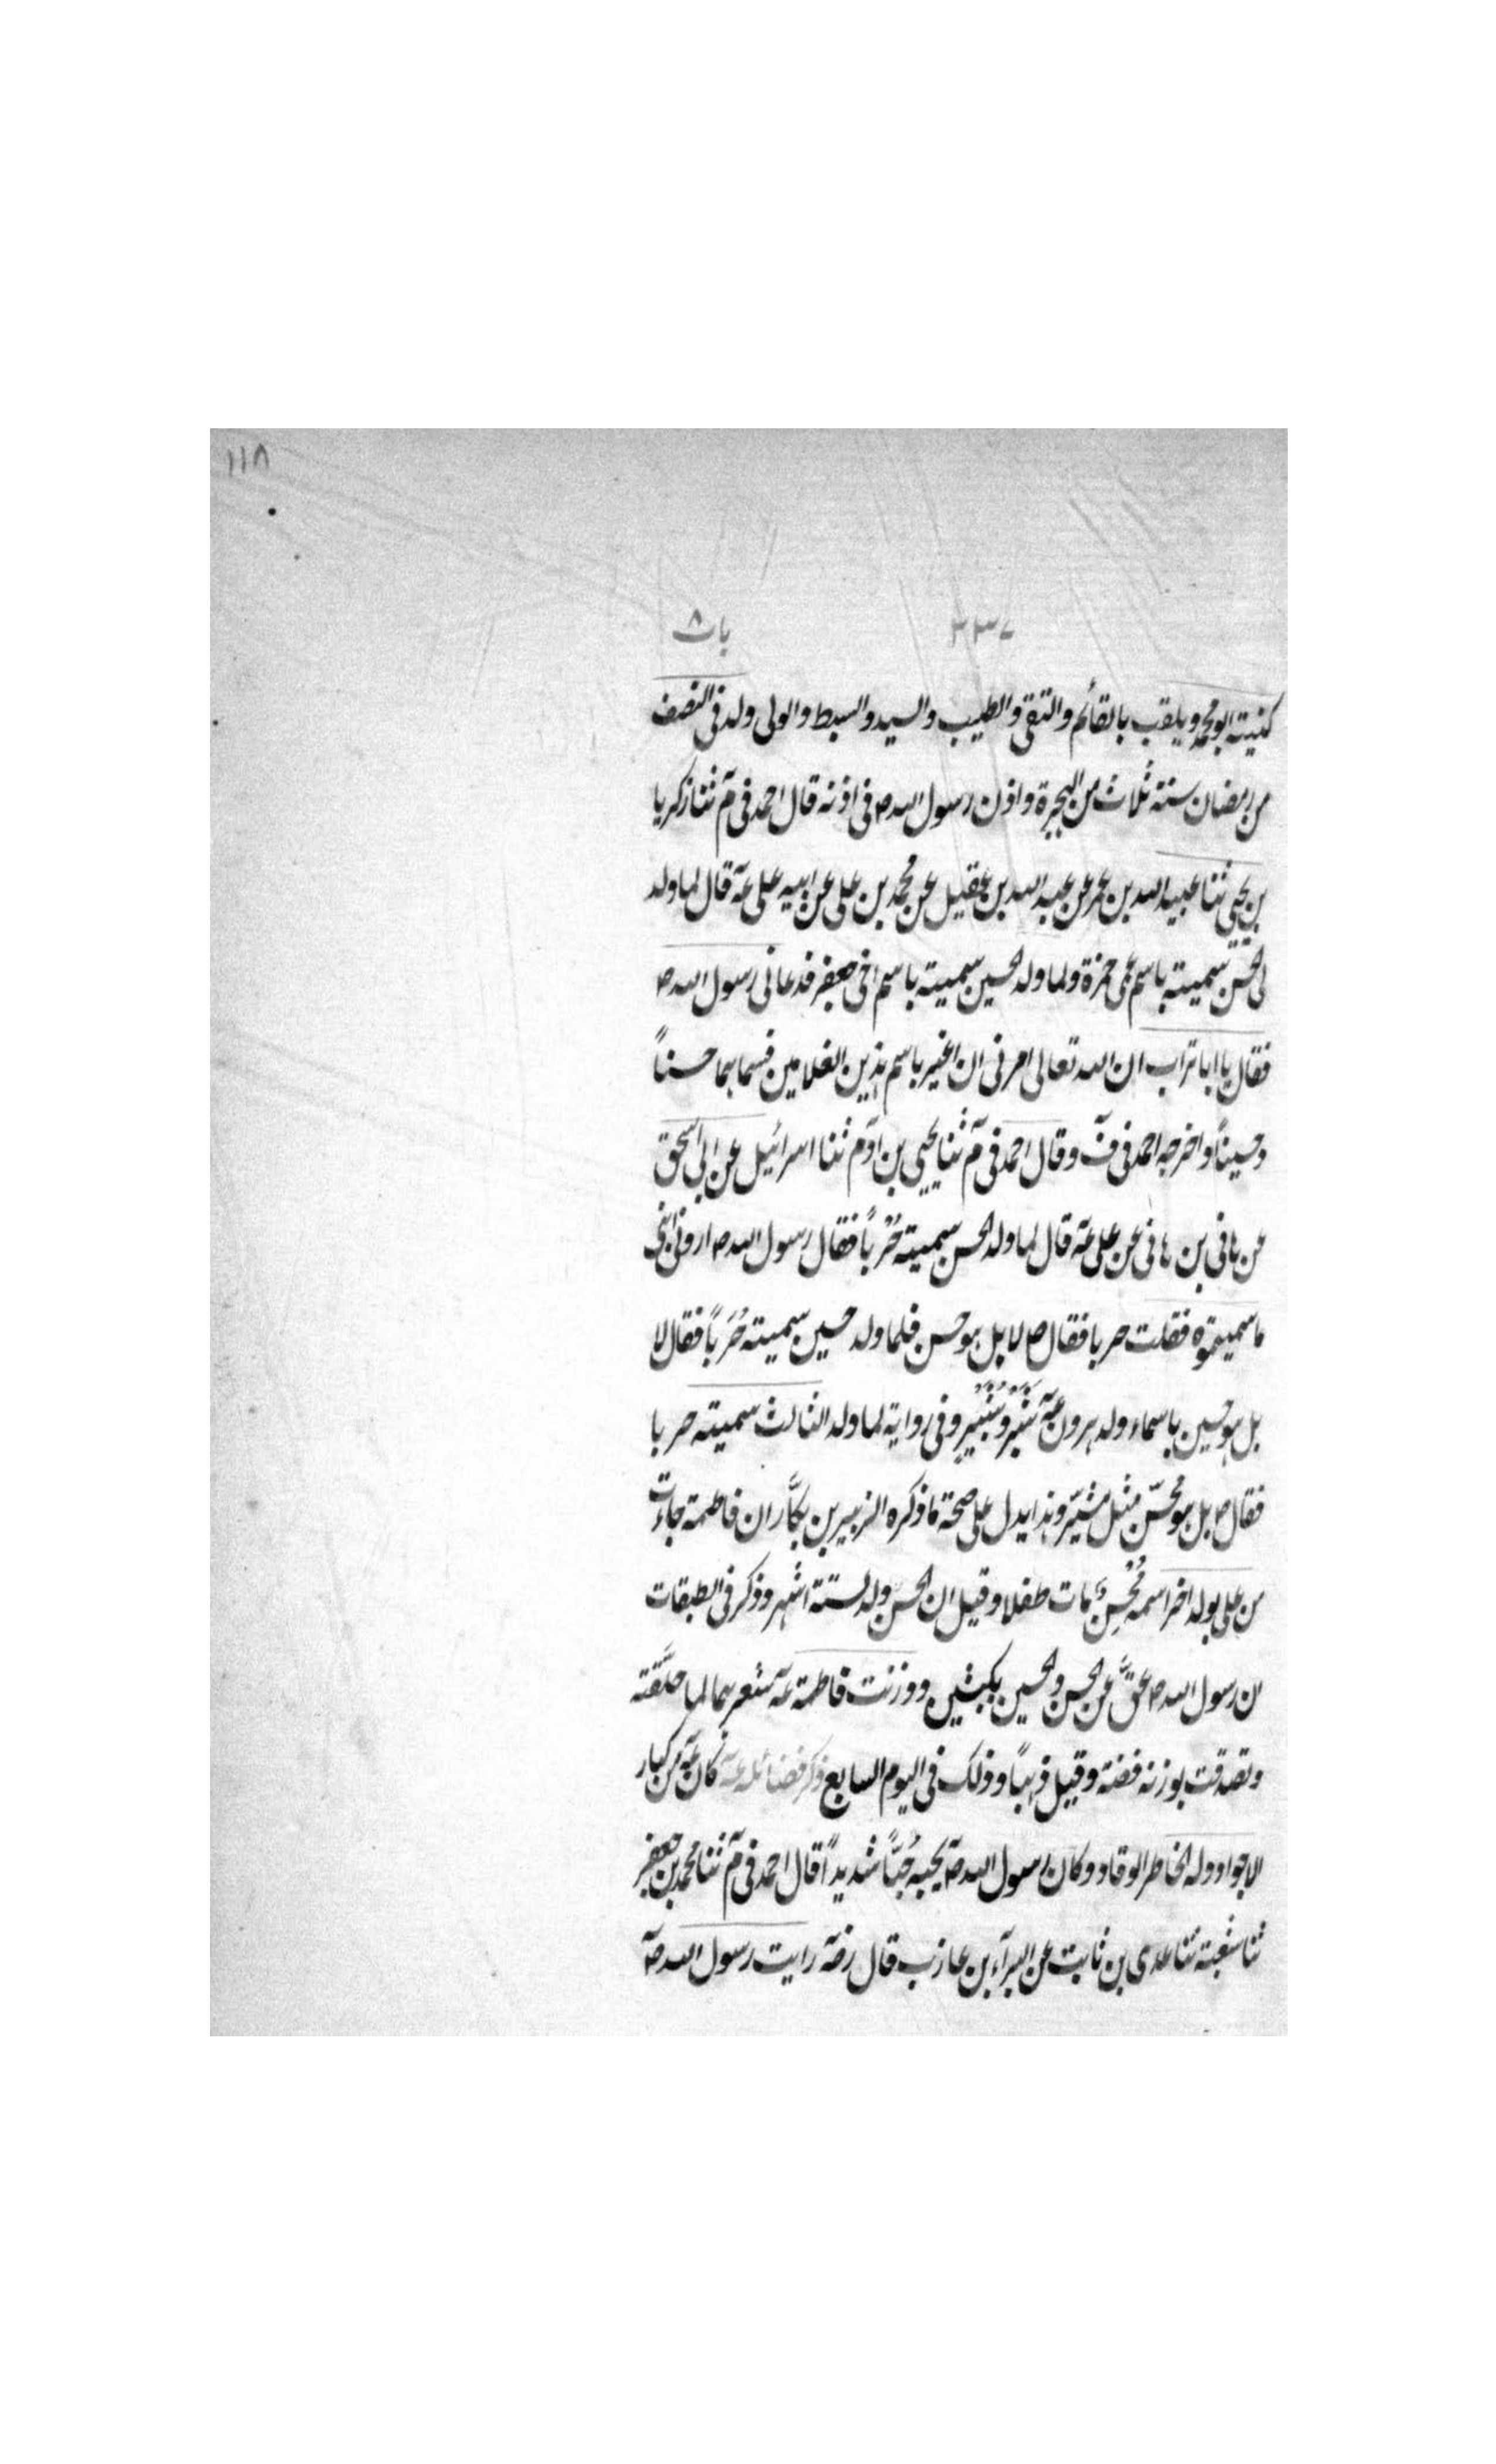 ١١٨
٢٣٧ باب ٨
كنيته ابو محمد ويلقب بالقائم والتقى والطيب والسيد والسبط والولى ولد فى النصف
من رمضان سنة ثلاث من الهجرة واذن رسول الله ص فى اذنه قال احمد فى مَ ثنا زكريا
بن يحيى ثنا عبيد الله بن عمر عن عبد الله بن عقيل عن محمد بن على عن ابيه على عَه قال لما ولد
لى الحسن سميته باسم عمى حمزة ولما ولد الحسين سميته باسم اخى جعفر فدعانى رسول الله ص
فقال يا ابا تراب ان الله تعالى امرنى ان اغير باسم هذين الغلامين فسماهما حسناً
وحسيناً واخرجه احمد فى فَ وقال احمد فى مَ ثنا يحيى بن آدم ثنا اسرائيل عن ابى اسحق
عن هانى بن هانى عن على عَه قال لما ولد الحسن سميته حُرْباً فقال رسول الله ص ارونى ابنى
ما سميتموه فقلت حربا فقال ص لا بل هو حسن فلما ولد حسين سميته حُرَباً فقال لا
بل هو حسين باسماء ولد هرون عَه شَبَّر وشُبَّيْر وفى رواية لما ولد الثالث سميته حربا
فقال ص بل هو محسّن مثل مشبّر وهذا يدل على صحة ما ذكره الزبير بن بكَّار ان فاطمة جاءت
من على بولد اخر اسمه مُحْسِن وَ مات طفلا وقيل ان الحسن ولد لستة اشهر وذكر فى الطبقات
ان رسول الله ص عقَّ عن الحسن والحسين بكبشين ووزنت فاطمة عَه شعرهما لما حلَّقته
وتصدقت بوزنه فضة وقيل ذهباً وذلك فى اليوم السابع ذكر فضائله عَه كان عَه من كبار
الاجواد وله الخاطر الوقاد وكان رسول الله صَ يحبه حُبَّاً شديداً قال احمد فى مَ ثنا محمد بن جعفر
ثنا شعبة ثنا عدى بن ثابت عن البرآء بن عازب قال رضَه رايت رسول الله صَ